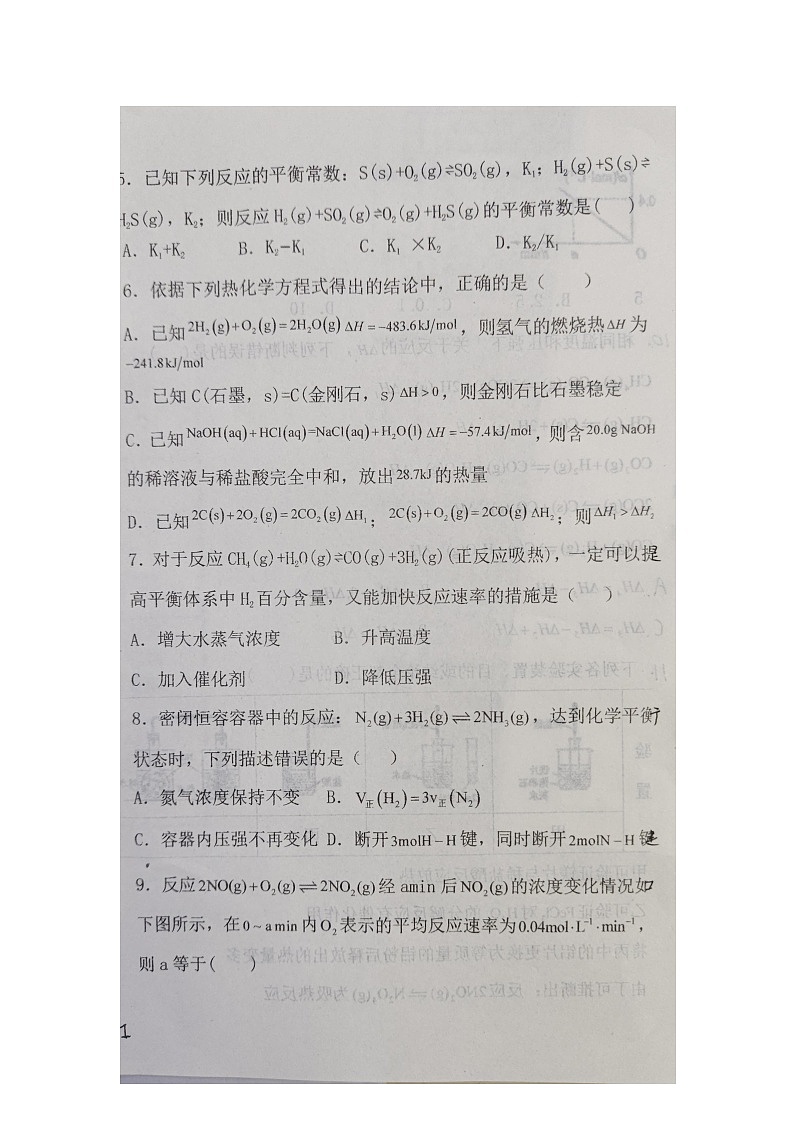 5. 已知下列反应的平衡常数: S(s)+O₂(g)⇌SO₂(g), K₁; H₂(g)+S(s)⇌
H₂S(g), K₂; 则反应 H₂(g)+SO₂(g)⇌O₂(g)+H₂S(g)的平衡常数是( )
A. K₁+K₂ B. K₂-K₁ C. K₁ ×K₂ D. K₂/K₁
6. 依据下列热化学方程式得出的结论中，正确的是（ ）
A. 已知2H₂(g)+O₂(g)=2H₂O(g) ΔH=-483.6kJ/mol，则氢气的燃烧热ΔH为
-241.8kJ/mol
B. 已知 C(石墨, s)=C(金刚石, s) ΔH>0，则金刚石比石墨稳定
C. 已知NaOH(aq)+HCl(aq)=NaCl(aq)+H₂O(l) ΔH=-57.4kJ/mol，则含20.0g NaOH
的稀溶液与稀盐酸完全中和，放出28.7kJ的热量
D. 已知2C(s)+2O₂(g)=2CO₂(g) ΔH₁；2C(s)+O₂(g)=2CO(g) ΔH₂；则ΔH₁>ΔH₂
7. 对于反应 CH₄(g)+H₂O(g)⇌CO(g)+3H₂(g)(正反应吸热)，一定可以提
高平衡体系中 H₂ 百分含量，又能加快反应速率的措施是（ ）
A. 增大水蒸气浓度 B. 升高温度
C. 加入催化剂 D. 降低压强
8. 密闭恒容容器中的反应: N₂(g)+3H₂(g)⇌2NH₃(g)，达到化学平衡
状态时，下列描述错误的是（ ）
A. 氮气浓度保持不变 B. V正(H₂)=3v正(N₂)
C. 容器内压强不再变化 D. 断开3molH-H键，同时断开2molN-H键
9. 反应2NO(g)+O₂(g)⇌2NO₂(g)经 amin 后NO₂(g)的浓度变化情况如
下图所示，在0~a min内O₂表示的平均反应速率为0.04mol·L⁻¹·min⁻¹，
则 a 等于( )
1